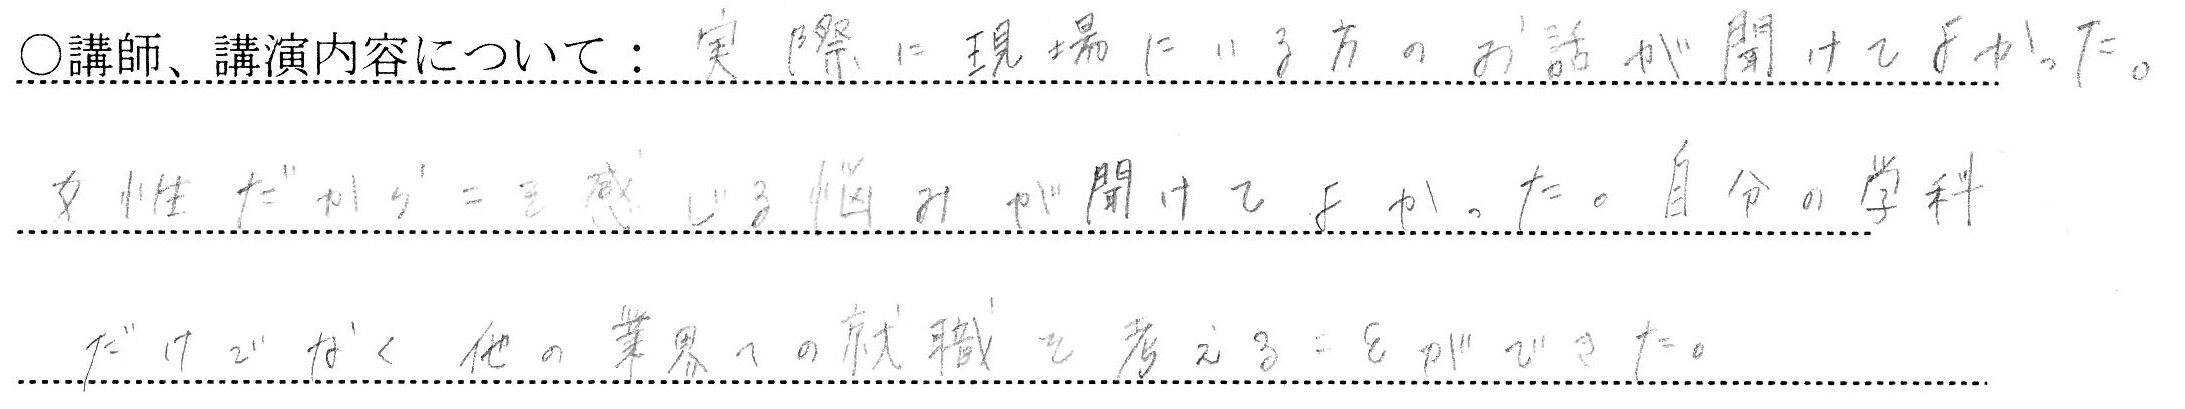 ○講師、講演内容について：実際に現場にいる方のお話が聞けてよかった。
女性だからこそ感じる悩みが聞けてよかった。自分の学科
だけでなく他の業界への就職を考えることができた。